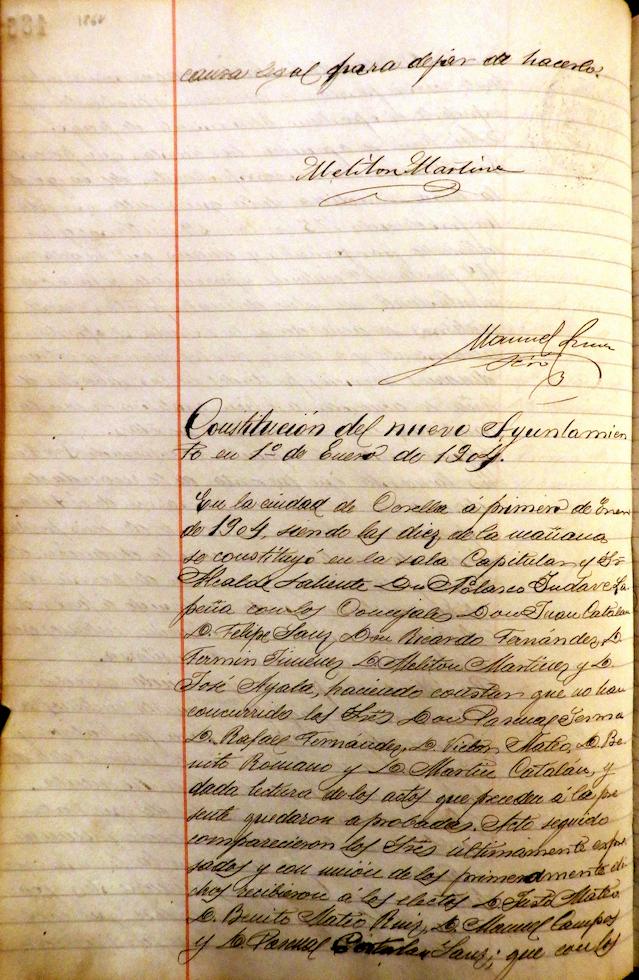 1864
causa legal para dejar de hacerlo.
Meliton Martinez
Manuel
Srio
Constitución del nuevo Ayuntamien
to en 1º de Enero de 1904.
En la ciudad de Corella á primero de Enero
de 1904, siendo las diez de la mañana
se constituyó en la sala Capitular y Sr
Alcalde saliente Don Polasco
peña con los Concejales Don Juan Catalan
D. Felipe Sanz, Don Ricardo Fernández, D.
Fermin Jimenez D. Meliton Martinez y D.
José Ayala, haciendo constar que no han
concurrido los Sres Don Pascual Serma
D. Rafael Fernández, D. Victor Mateo, D. Be
nito Romano y D. Martin Catalán, y
dada lectura de los actos que preceden á la pre
sente quedaron aprobadas. Acto seguido
comparecieron los Sres últimamente expre
sados y con unión de los primeramente di
chos recibieron á los electos D. Justo Mateo
D. Benito Mateo Ruiz, D. Manuel Campos
y D. Pascual Sanz; que con los